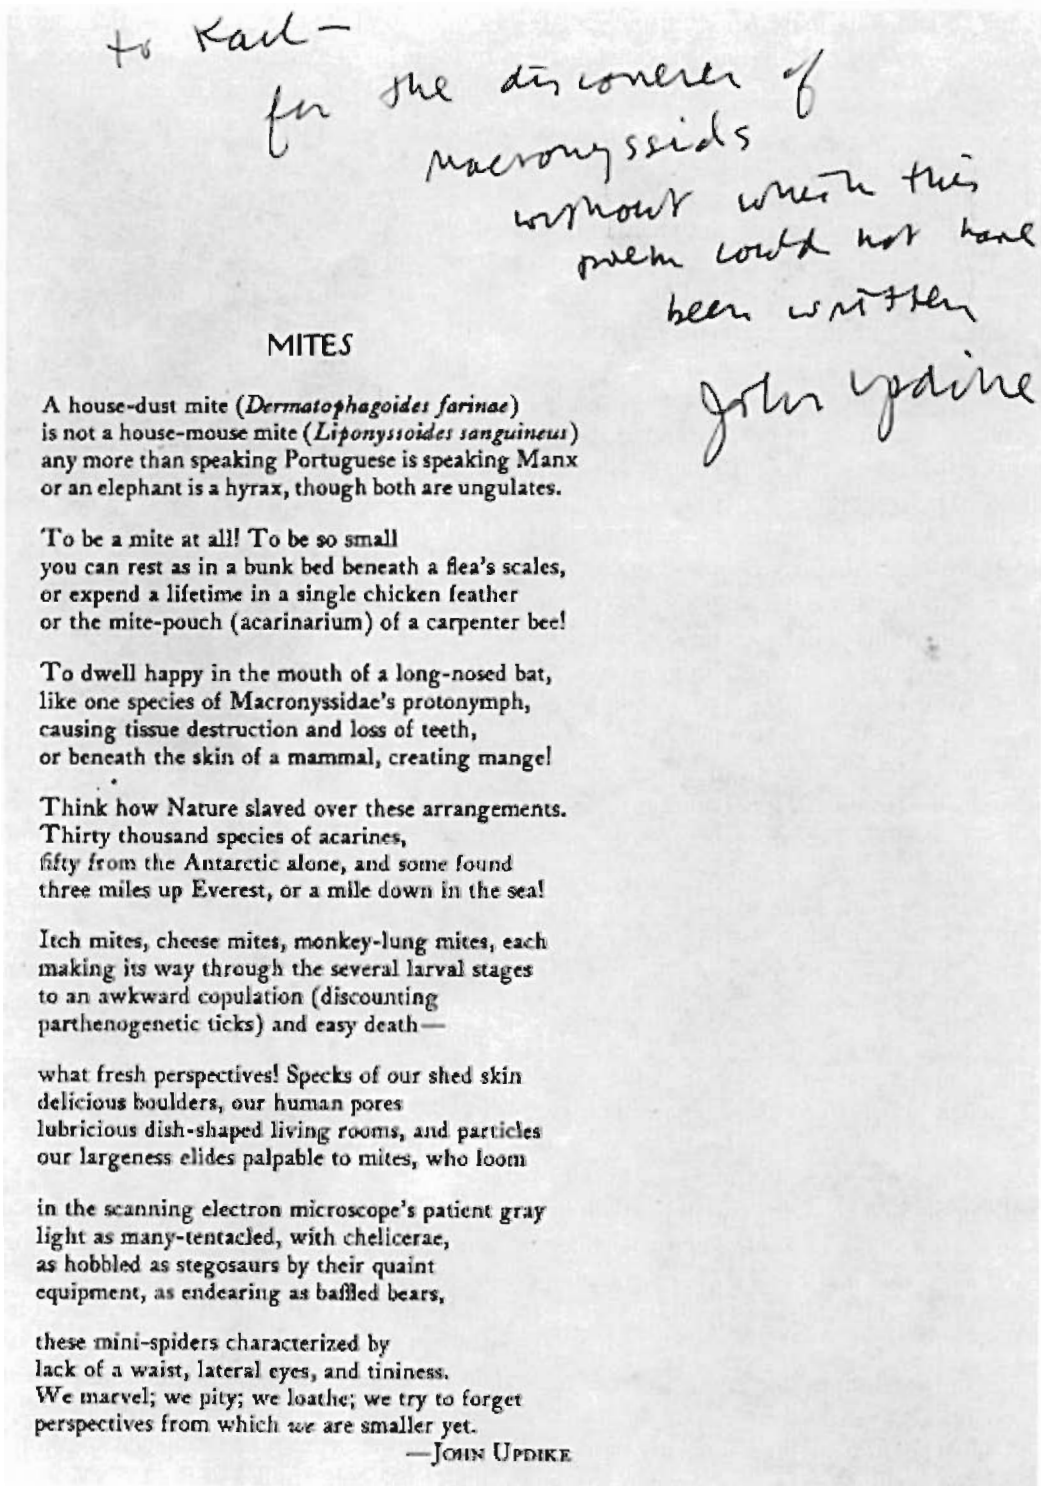 to Karl –
for the discoverer of
Macronyssids
without which this
poem could not have
been written
John Updike
MITES
A house-dust mite (Dermatophagoides farinae)
is not a house-mouse mite (Liponyssoides sanguineus)
any more than speaking Portuguese is speaking Manx
or an elephant is a hyrax, though both are ungulates.
To be a mite at all! To be so small
you can rest as in a bunk bed beneath a flea's scales,
or expend a lifetime in a single chicken feather
or the mite-pouch (acarinarium) of a carpenter bee!
To dwell happy in the mouth of a long-nosed bat,
like one species of Macronyssidae's protonymph,
causing tissue destruction and loss of teeth,
or beneath the skin of a mammal, creating mange!
Think how Nature slaved over these arrangements.
Thirty thousand species of acarines,
fifty from the Antarctic alone, and some found
three miles up Everest, or a mile down in the sea!
Itch mites, cheese mites, monkey-lung mites, each
making its way through the several larval stages
to an awkward copulation (discounting
parthenogenetic ticks) and easy death—
what fresh perspectives! Specks of our shed skin
delicious boulders, our human pores
lubricious dish-shaped living rooms, and particles
our largeness elides palpable to mites, who loom
in the scanning electron microscope's patient gray
light as many-tentacled, with chelicerae,
as hobbled as stegosaurs by their quaint
equipment, as endearing as baffled bears,
these mini-spiders characterized by
lack of a waist, lateral eyes, and tininess.
We marvel; we pity; we loathe; we try to forget
perspectives from which we are smaller yet.
—JOHN UPDIKE